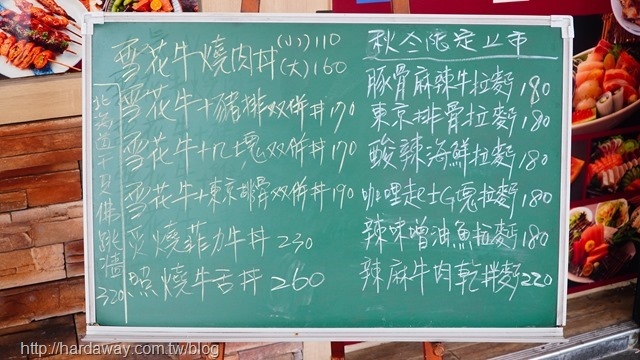 雪花牛燒肉丼(小)110
(大)160
雪花牛+豬排双併丼170
雪花牛+G塊双併丼170
雪花牛+東京排骨双併丼190
炙燒菲力牛丼230
照燒牛舌丼260
北海道干貝佛跳牆320
秋冬限定上市
豚骨麻辣牛拉麵180
東京排骨拉麵180
酸辣海鮮拉麵180
咖哩起士G塊拉麵180
辣味噌油魚拉麵180
辣麻牛肉乾拌麵220
http://hardaway.com.tw/blog